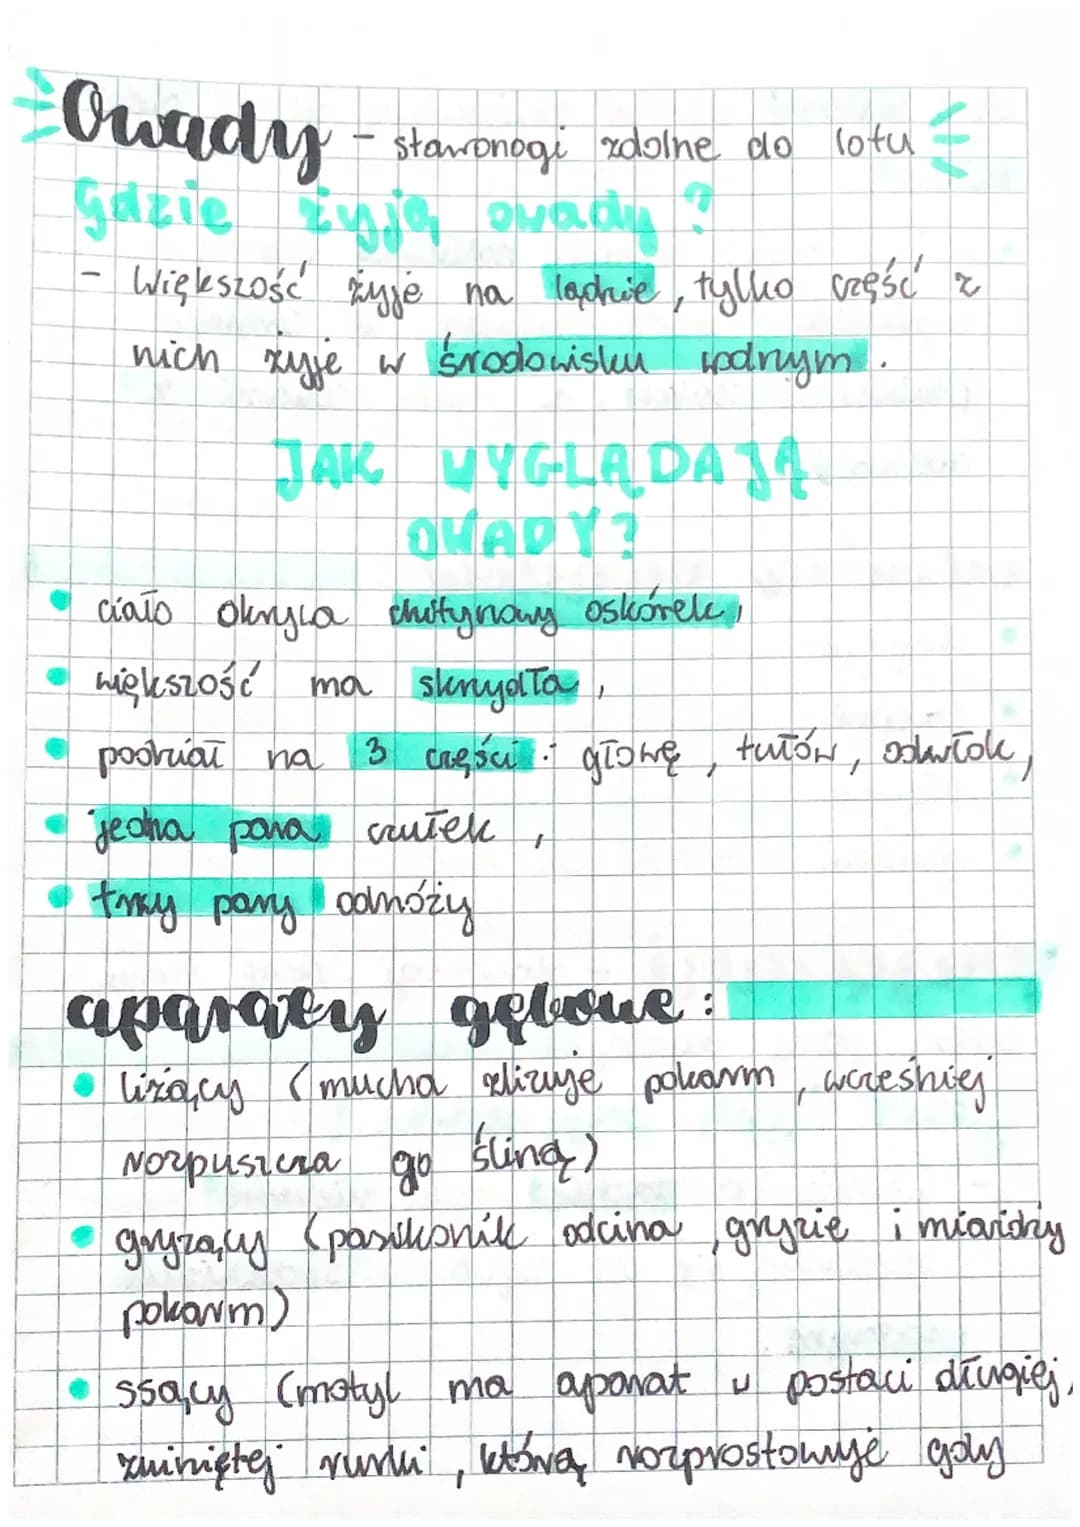 Owady - stawonogi zdolne do lotu
Gdzie żyją owady?
- Większość żyje na lądzie, tylko część z
nich żyje w środowisku wodnym.
JAK WYGLĄDAJĄ
OWADY?
• ciało okrywa chitynowy oskórek,
• większość ma skrzydła,
• podział na 3 części: głowę, tułów, odwłok,
• jedna para czułek,
• trzy pary odnóży
aparaty gębowe:
• liżący (mucha zlizuje pokarm, wcześniej
rozpuszcza go śliną)
• gryzący (pasikonik odcina, gryzie i miażdży
pokarm)
• ssący (motyl ma aparat w postaci długiej,
zwiniętej rurki, którą rozprostowuje gdy